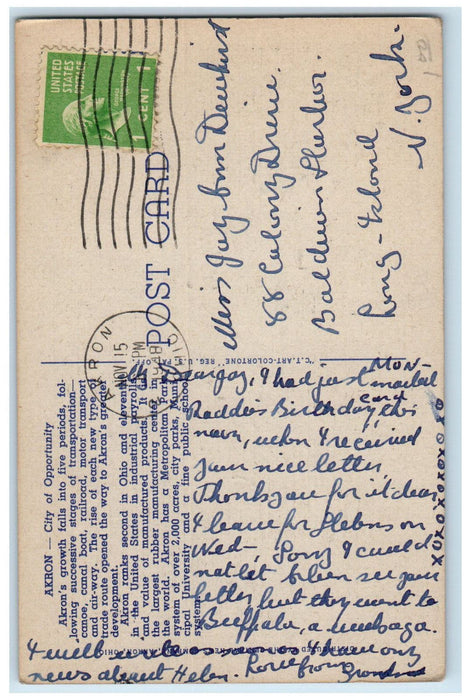 AKRON — City of Opportunity
Akron's growth falls into five periods, fol-
lowing successive stages of transportation—
canoe, canal boat, railroad, motor transport
and air-way. The rise of each new type of
trade route opened the way to Akron's greater
development.
Akron ranks second in Ohio and eleventh
in the United States in industrial payrolls
and value of manufactured products. It is
the largest rubber manufacturing center in
the world. Akron has a Metropolitan Park
system of over 2,000 acres, city parks, Muni-
cipal University and a fine public school
system.
POST CARD
"C.T. ART-COLORTONE" REG. U.S. PAT. OFF.
UNITED
STATES
POSTAGE
1 CENT 1
AKRON
NOV 15
PM
OHIO
Miss Jay Ann Dewhirst
88 Colony Drive
Baldwin Harbor
Long-Island
N. York.
MON-
Dear Jay, I had just mailed
Daddies Birthday card this
noon, when I received
your nice letter
Thank you for it dear
I leave for Helens on
Wed-, Sorry I could
not let Helen see your
letter, but they went to
Buffalo, a week ago.
I will write as soon as I have any
news about Helen. Love from
XOXOXOXOXOXO